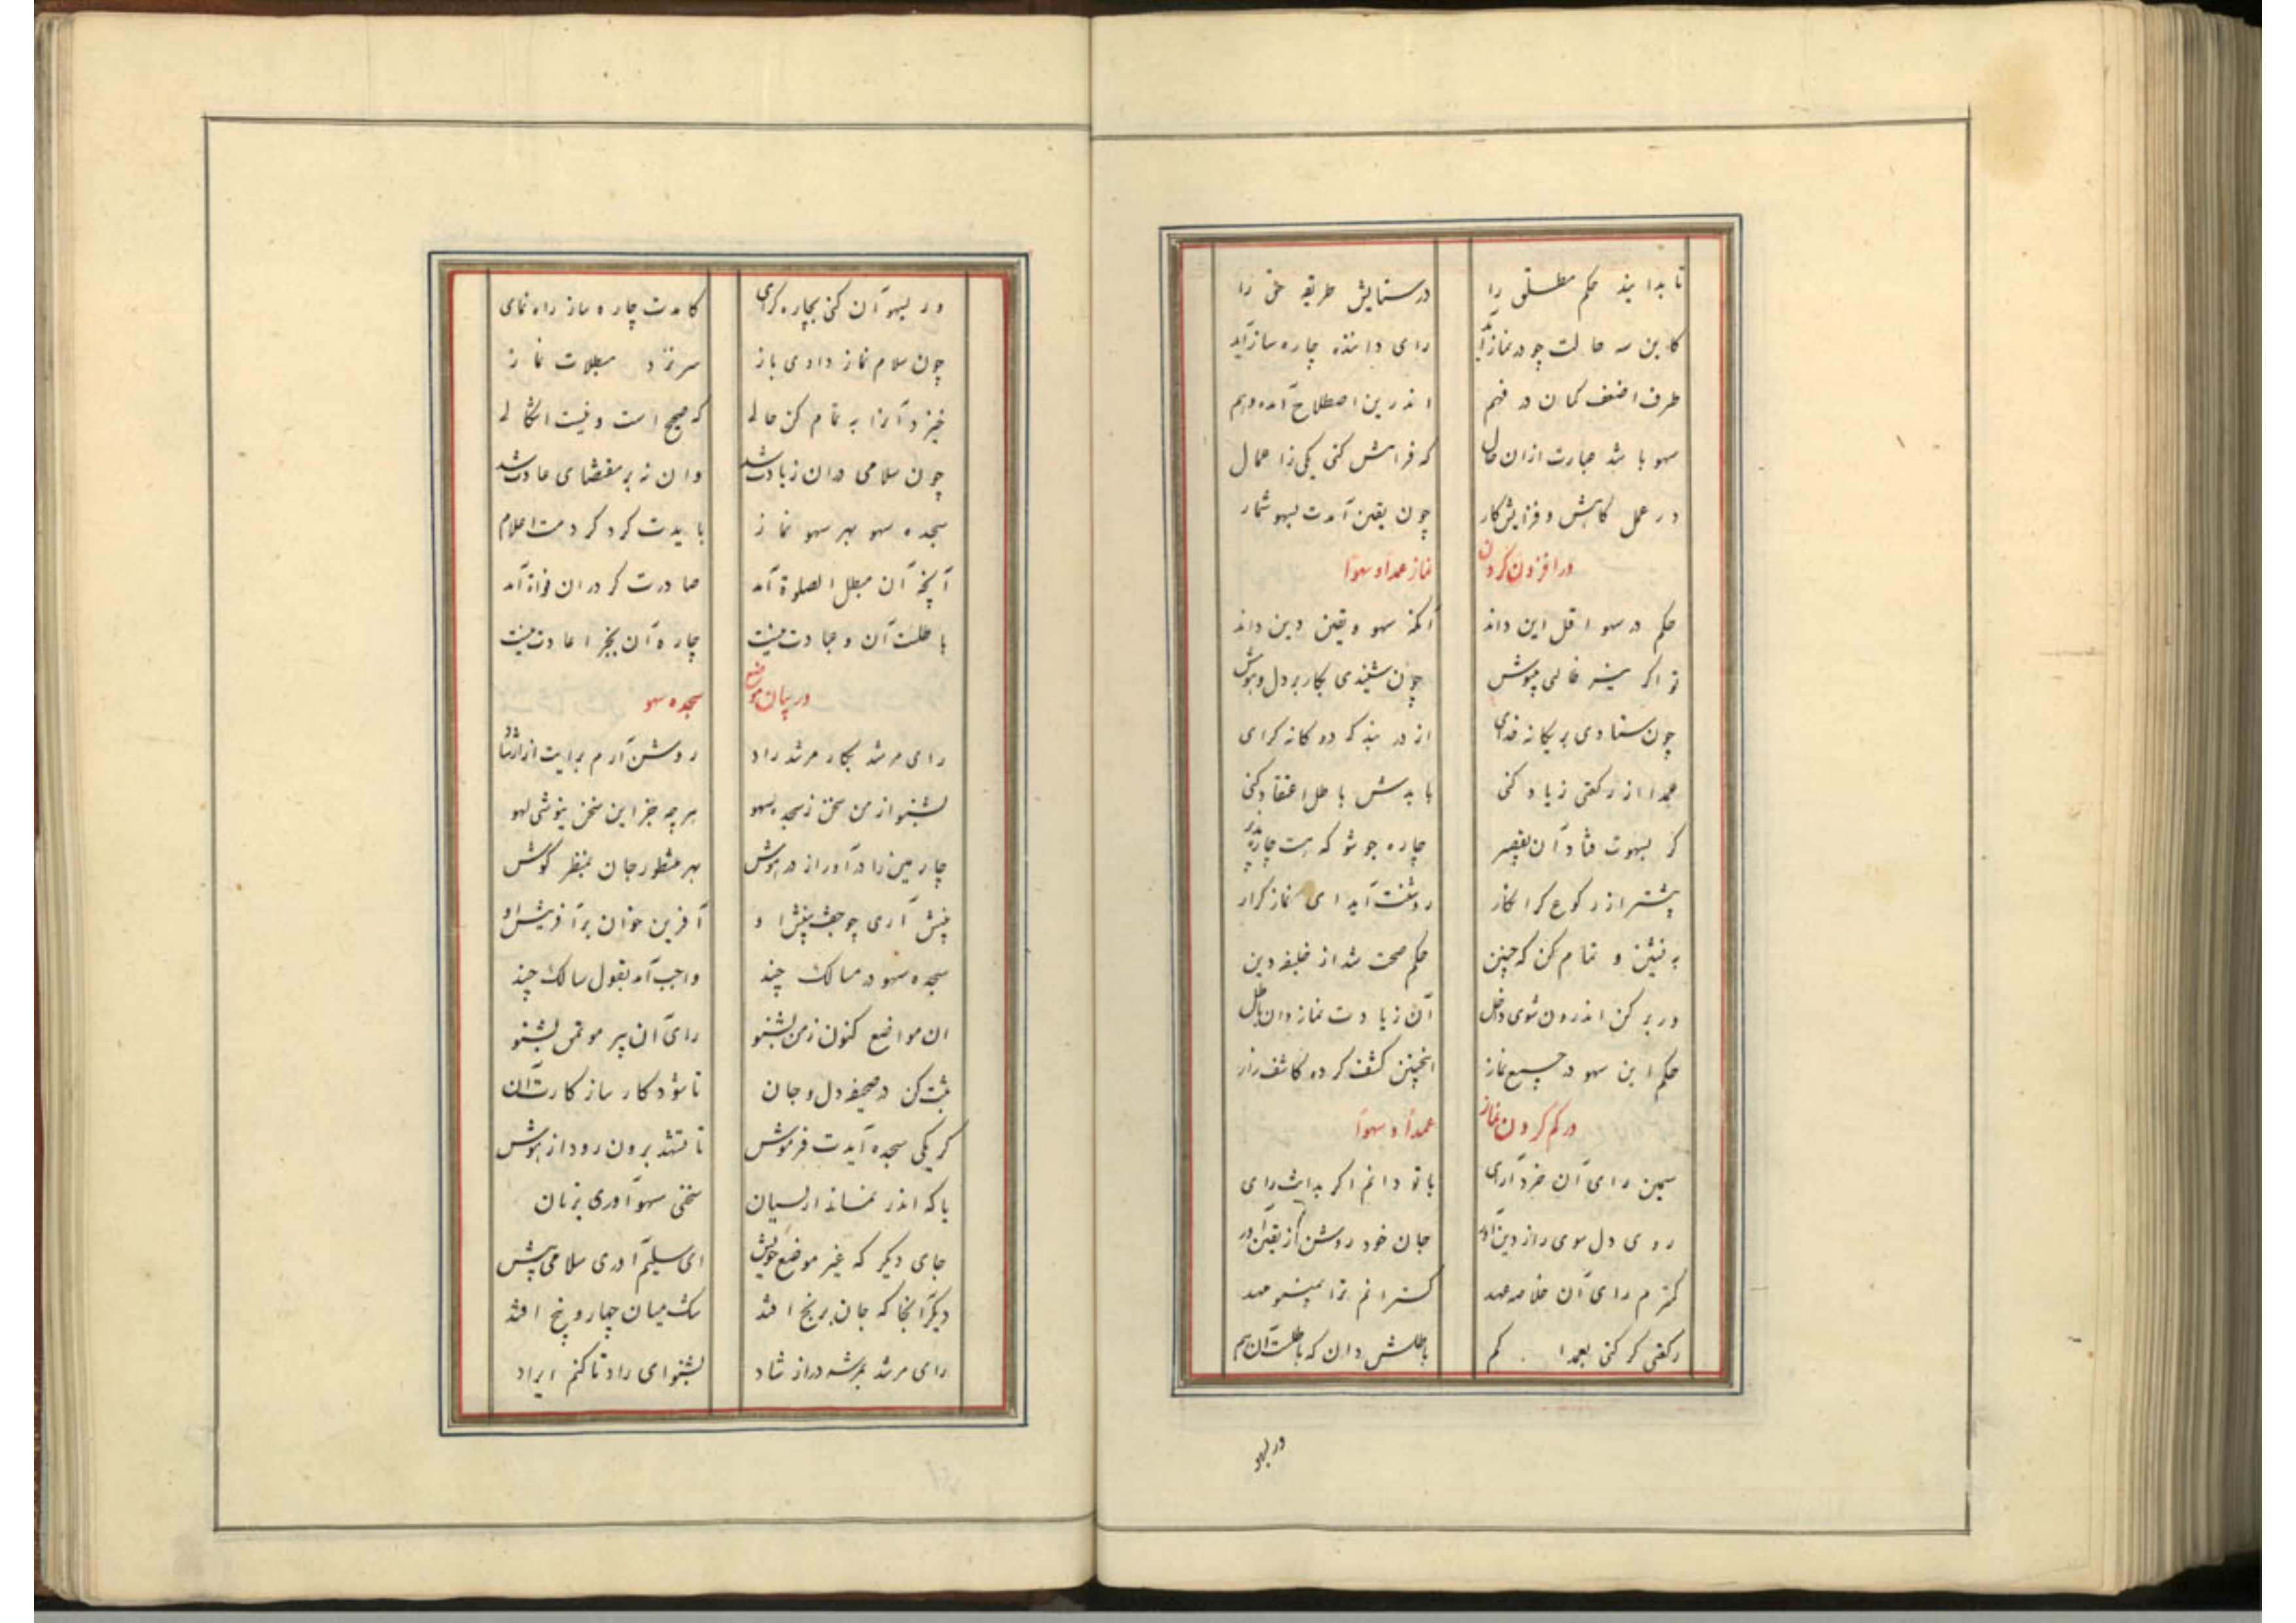 تا بدانید حکم مطلق را در ستایش طریقه حق را
کاین سه حالت چو در نماز آید رای داننده چاره ساز آید
طرف اضعف کمان در فهم اندرین اصطلاح آمد وهم
سهو باشد عبارت ازان حال که فرامش کنی یکی زاعمال
در عمل کاهش و فزایش کار چون یقین آمدت بسهو شمار
در افزون کردن نماز عمداً و سهواً
حکم در سهو اقل این داند آنکه سهو و یقین دین داند
تو اکر چون شنیدی بکار بر دل و هوش
چون ستادی بر یکانه خدای از در بندکی دوکانه کرای
عمدا از رکعتی زیاد کنی بایدش باطل اعتقاد کنی
کر بسهوت فتاد آن تقصیر چاره جو شو که هست چاره پذیر
پیشتر از رکوع کر انکار روشنت آید ای نماز کزار
بنشین و تمام کن که چنین حکم صحت شد از خلیفه دین
ور برکن اندرون شوی داخل آن زیادت نماز دان باطل
حکم این سهو در جمیع نماز اینچنین کشف کرده کاشف راز
در کم کردن نماز عمداً و سهواً
رای آن خرد آرای با تو دانم اکر بدانت رای
روی دل سوی راز دین آور جان خود روشن از یقین آور
کسترم رای آن خلاصه عهد کسترانم ترا مهد
رکعتی کر کنی بعمدا کم باطلش دان که باطلست آن هم
در بسهو
ور بسهو آن کنی بچاره کرای کامدت چاره ساز راه نمای
چون سلام نماز دادی باز سر نزد مبطلات نماز
خیز و آنرا تمام کن حالی که صحیح است و نیست اشکالی
چون سلامی دران زیادت شد وان نه بر مقتضای عادت شد
سجده سهو بهر سهو نماز بایدت کرد کردمت اعلام
آنچه آن مبطل الصلوة آمد صادرت کر دران آمد
باطلست آن و عبادت نیست چاره آن بجز اعادت نیست
در بیان موضع سجده سهو
رای مرشد بکار مرشد راد روشن آرم برایت از ارشاد
بشنو از من سخن ز سجده سهو هر چه جز این سخن نیوشی لهو
چارمین را درآور از در هوش بهر منظور جان بمنظر کوش
پیش آری چو او آفرین خوان بر آفرینش او
سجده سهو در مسالک چند واجب آمد بقول سالک چند
ان مواضع کنون ز من بشنو رای آن پیر موتمن بشنو
ثبت کن در صحیفه دل و جان تا شود کار ساز کارت آن
کر یکی سجده آیدت فرموش تا تشهد برون رود از هوش
یا که اندر نماز از نسیان سخنی سهو آوری بزبان
جای دیکر که غیر موضع خویش ای سلیم آوری سلامی پیش
دیکر آنجا که جان برنج افتد شک میان چهار و پنج افتد
رای مرشد در ارشاد بشنو ای راد تا کنم ایراد